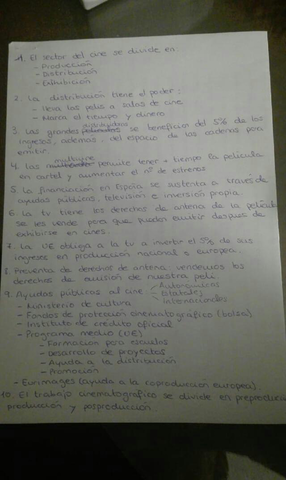 1. El sector del cine se divide en
- Producción
- Distribución
- Exhibición
2. La distribución tiene el poder:
- lleva las pelis a salas de cine
- Marca el tiempo y dinero
3. Las grandes se benefician del 5% de los
ingresos, además del espacio de las cadenas para
emitir.
4. Las permite tener + tiempo la película
en cartel y aumentar el nº de estrenos
5. La financiación en España se sustenta a través de
ayudas públicas, televisión e inversión propia.
6. La tv tiene los derechos de antena de la película
se les vende para que puedan emitir después de
exhibirse en cines.
7. La UE obliga a la tv a invertir el 5% de sus
ingresos en producción nacional y europea
8. Preventa de derechos de antena, vendemos los
derechos de emisión de nuestra peli
9. Ayudas públicas al cine Autonómicas
Estatales
Internacionales
- Ministerio de cultura
- Fondos de protección cinematográfica (bolsa)
- Instituto de crédito oficial
- Programa media (UE)
- Formación para escuelas
- desarrollo de proyectos
- Ayuda a la distribución
- Promoción
- Eurimages (ayuda a la coproducción europea)
10. El trabajo cinematográfico se divide en
producción y posproducción